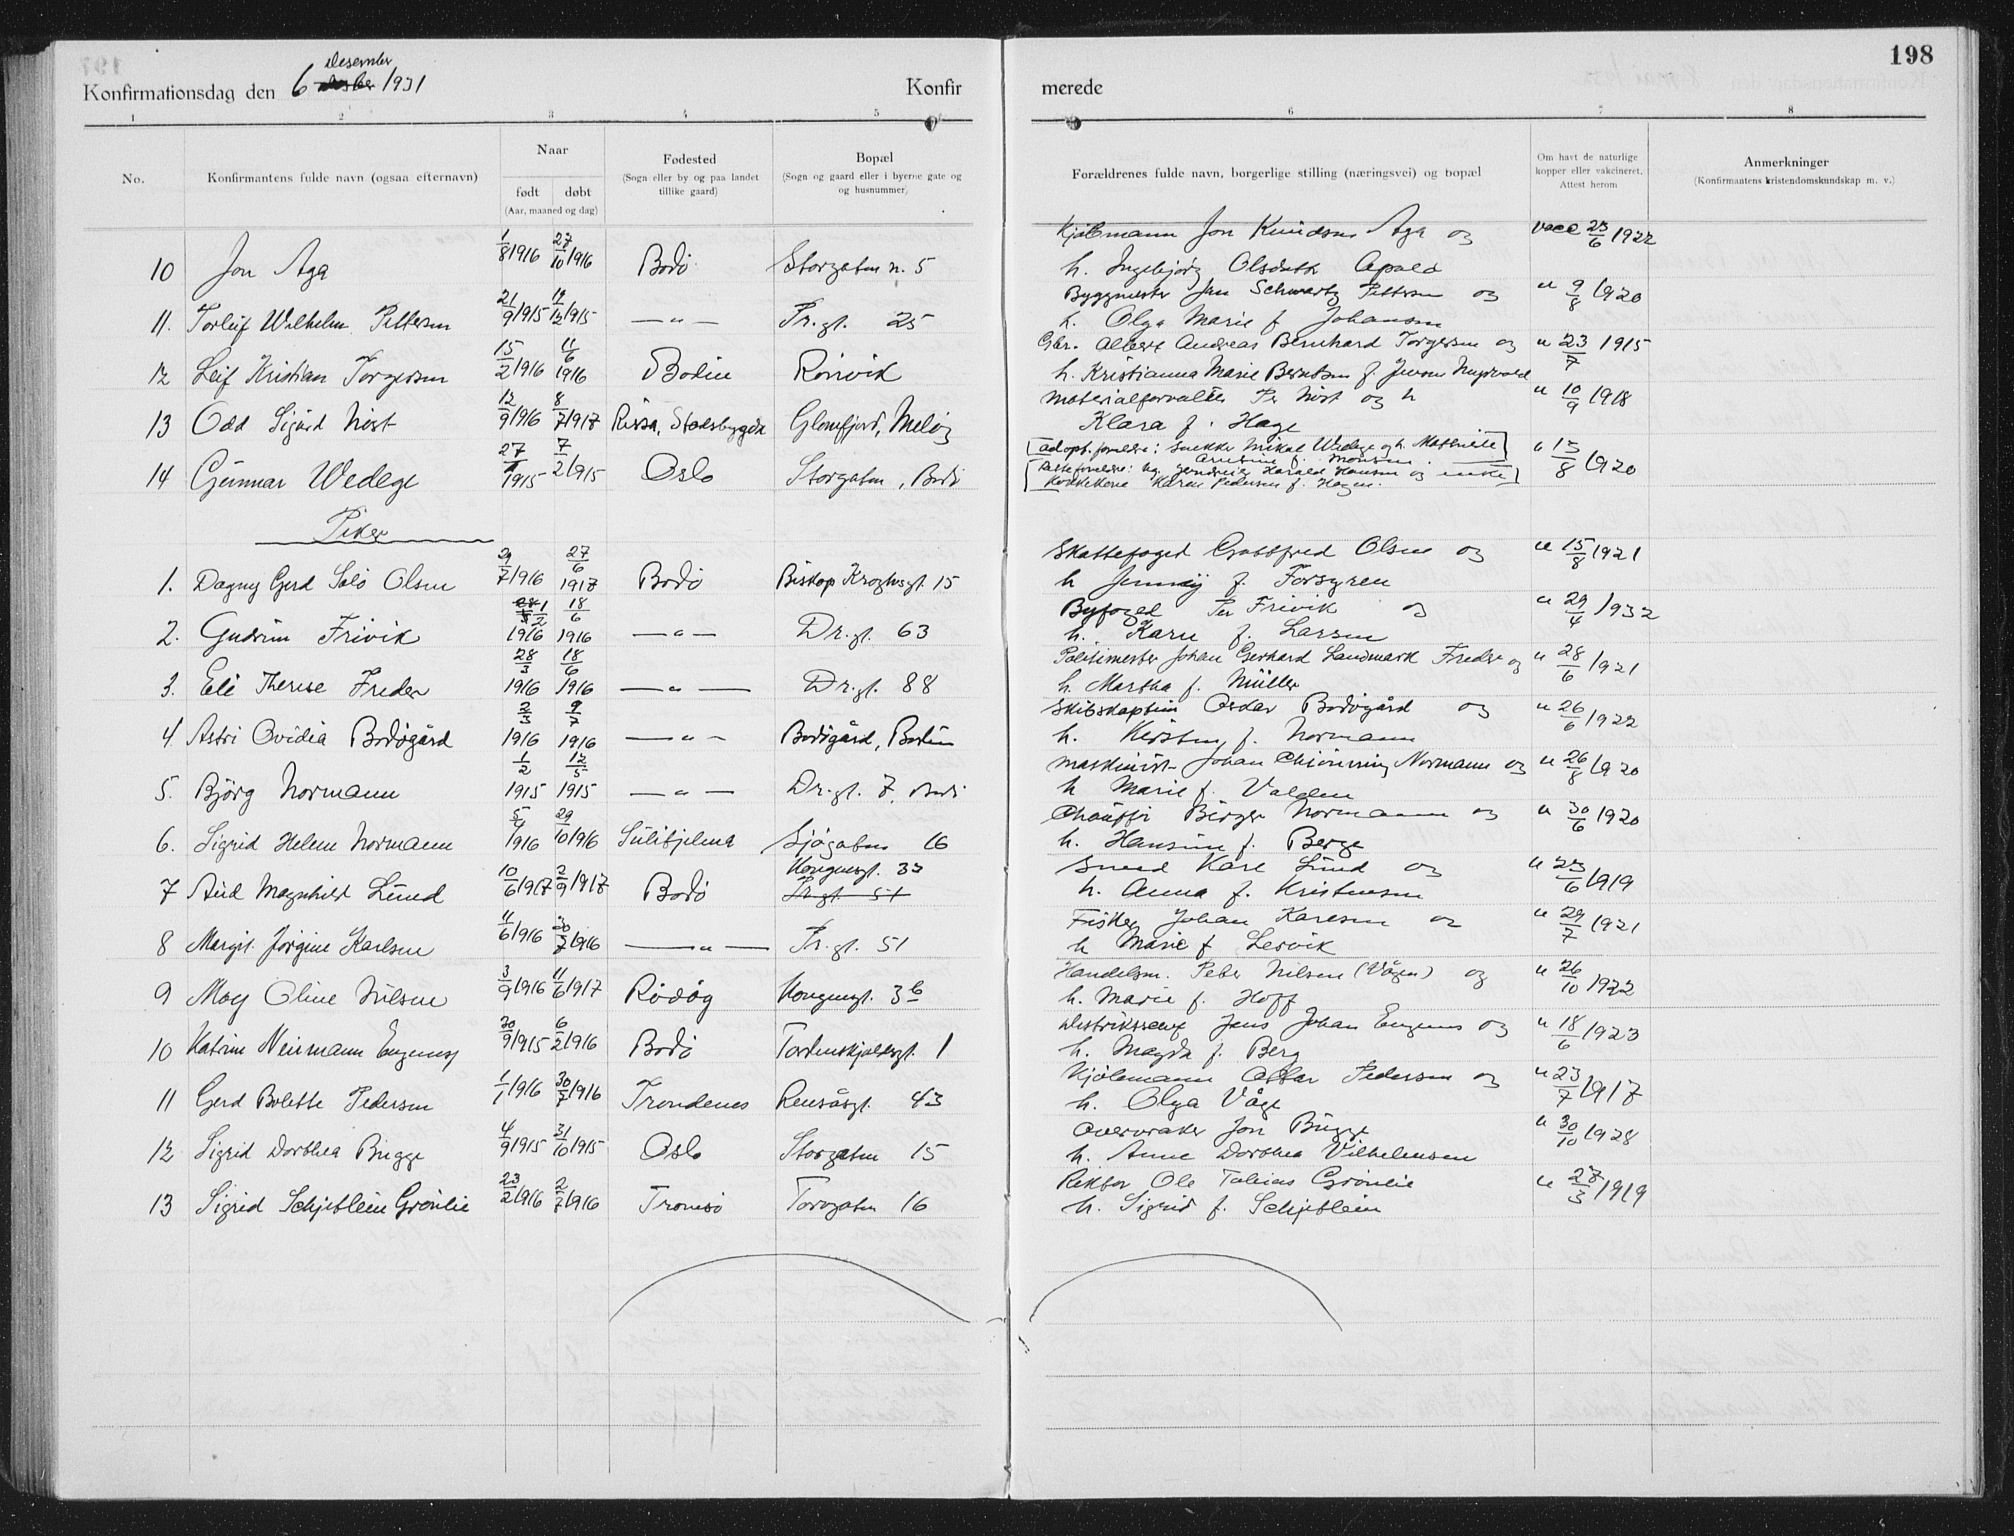 198
Konfirmationsdag den 6 Desember 1931
Konfir
merede
1 2 3 4 5 6 7 8
No.
Konfirmantens fulde navn (ogsaa efternavn)
Naar
født døbt
(Aar, maaned og dag)
Fødested
(Sogn eller by og paa landet
tillike gaard)
Bopæl
(Sogn og gaard eller i byerne gate og
og husnummer)
Forældrenes fulde navn, borgerlige stilling (næringsvei) og bopæl
Om havt de naturlige
kopper eller vakcineret.
Attest herom
Anmerkninger
(Konfirmantens kristendomskundskap m. v.)
10 Jon Aga 1/8 1916 27/10 1916 Bodø Storgaten n. 5 Kjøbmann Jon Knudsen Aga og vacc 23/6 1922
h. Ingebjørg Olsdatter Apold
11. Torleif Wilhelm Pettersen 21/9 1915 12/12 1915 —"— Pr.gt. 25 Byggmester Jan Schwartz Pettersen og " 9/8 1920
h. Olga Marie f Johansen
12 Leif Kristian Torgersen 15/2 1916 11/6 1916 Bodin Rønvik Gbr. Albert Andreas Bernhard Torgersen og " 23/7 1915
h. Kristianna Marie Berntsen f.
13 Odd Sigurd Nøst 12/9 1916 8/7 1917 Rissa, Stadsbygda Glomfjord, Meløy Materialforvalter Per Nøst og h " 10/9 1918
Klara f. Hage
14 Gunnar Wedege 27/1 1915 7/2 1915 Oslo Storgaten, Bodø [adopt. foreldre: Snekker Mikal Wedege og h. Mathilde " 13/8 1920
Arntsine f. Monsen]
Harald Hansen og enke
Karen Pedersen f. Hagen.
Piker
1. Dagny Gerd Solø Olsen 29/7 1916 27/6 1917 Bodø Biskop Kroghsgt 15 Skattefoged Gottfred Olsen og " 15/8 1921
h Jenny f. Forsgren
2. Gudrun Frivik 1/2 1916 18/6 1916 —"— Dr.gt. 63 Byfoged Per Frivik og " 29/4 1932
h. Karen f. Larsen
3. Eli Therese Freder 28/3 1916 18/6 1916 —"— Dr.gt. 88 Politimester Johan Gerhard Landmark Freder og " 28/6 1921
h. Martha f. Müller
4 Astri Ovidia Bodøgård 2/3 1916 9/7 1916 —"— Bodøgård, Bodin Skibskaptein Oscar Bodøgård og " 26/6 1922
h. Kirsten, f. Normann
5. Bjørg Normann 1/2 1915 12/5 1915 —"— Dr.gt. 7, Bodø Maskinist Johan Normann og " 26/8 1920
h Marie f. Valden
6. Sigrid Helene Normann 5/4 1916 29/10 1916 Sulitjelma Sjøgaten 16 Chauffør Birger Normann og " 30/6 1920
h. Hansine f. Berge
7 Aud Magnhild Lund 10/6 1917 2/9 1917 Bodø Kongensgt. 33 Smed Kåre Lund og " 23/6 1919
Pr.gt. 51
h. Anna f. Kristensen
8 Margit Jørgine Karlsen 11/6 1916 30/7 1916 —"— Pr.gt. 51 Fisker Johan Karlsen og " 29/7 1921
h Marie f Lervik
9 Moy Oline Nilsen 3/9 1916 11/6 1917 Rødøy Kongensgt. 3 b Handelsm. Peder Nilsen (Vågen) og " 26/10 1922
h. Marie f. Hoff
10 Katrine Neumann Eugenus 30/9 1915 6/2 1916 Bodø Tordenskjoldsgt. 1 Distriktssjef Jens Johan Eugenus og " 18/6 1923
h. Magda f. Berg
11 Gerd Bolette Pedersen 1/1 1916 30/7 1916 Trondenes Rensåsgt. 43 Kjøbmann Ottar Pedersen og " 23/7 1917
h. Olga Våge
12 Sigrid Dorthea Bugge 4/9 1915 31/10 1915 Oslo Storgaten 15 Overvraker Jon Bugge " 30/10 1928
h. Anne Dorthea Vilhelmsen
13 Sigrid Schjetlein Grønlie 23/2 1916 2/7 1916 Tromsø Torvgaten 16 Rektor Ole Tobias Grønlie " 28/3 1919
h. Sigrid f. Schjetlein